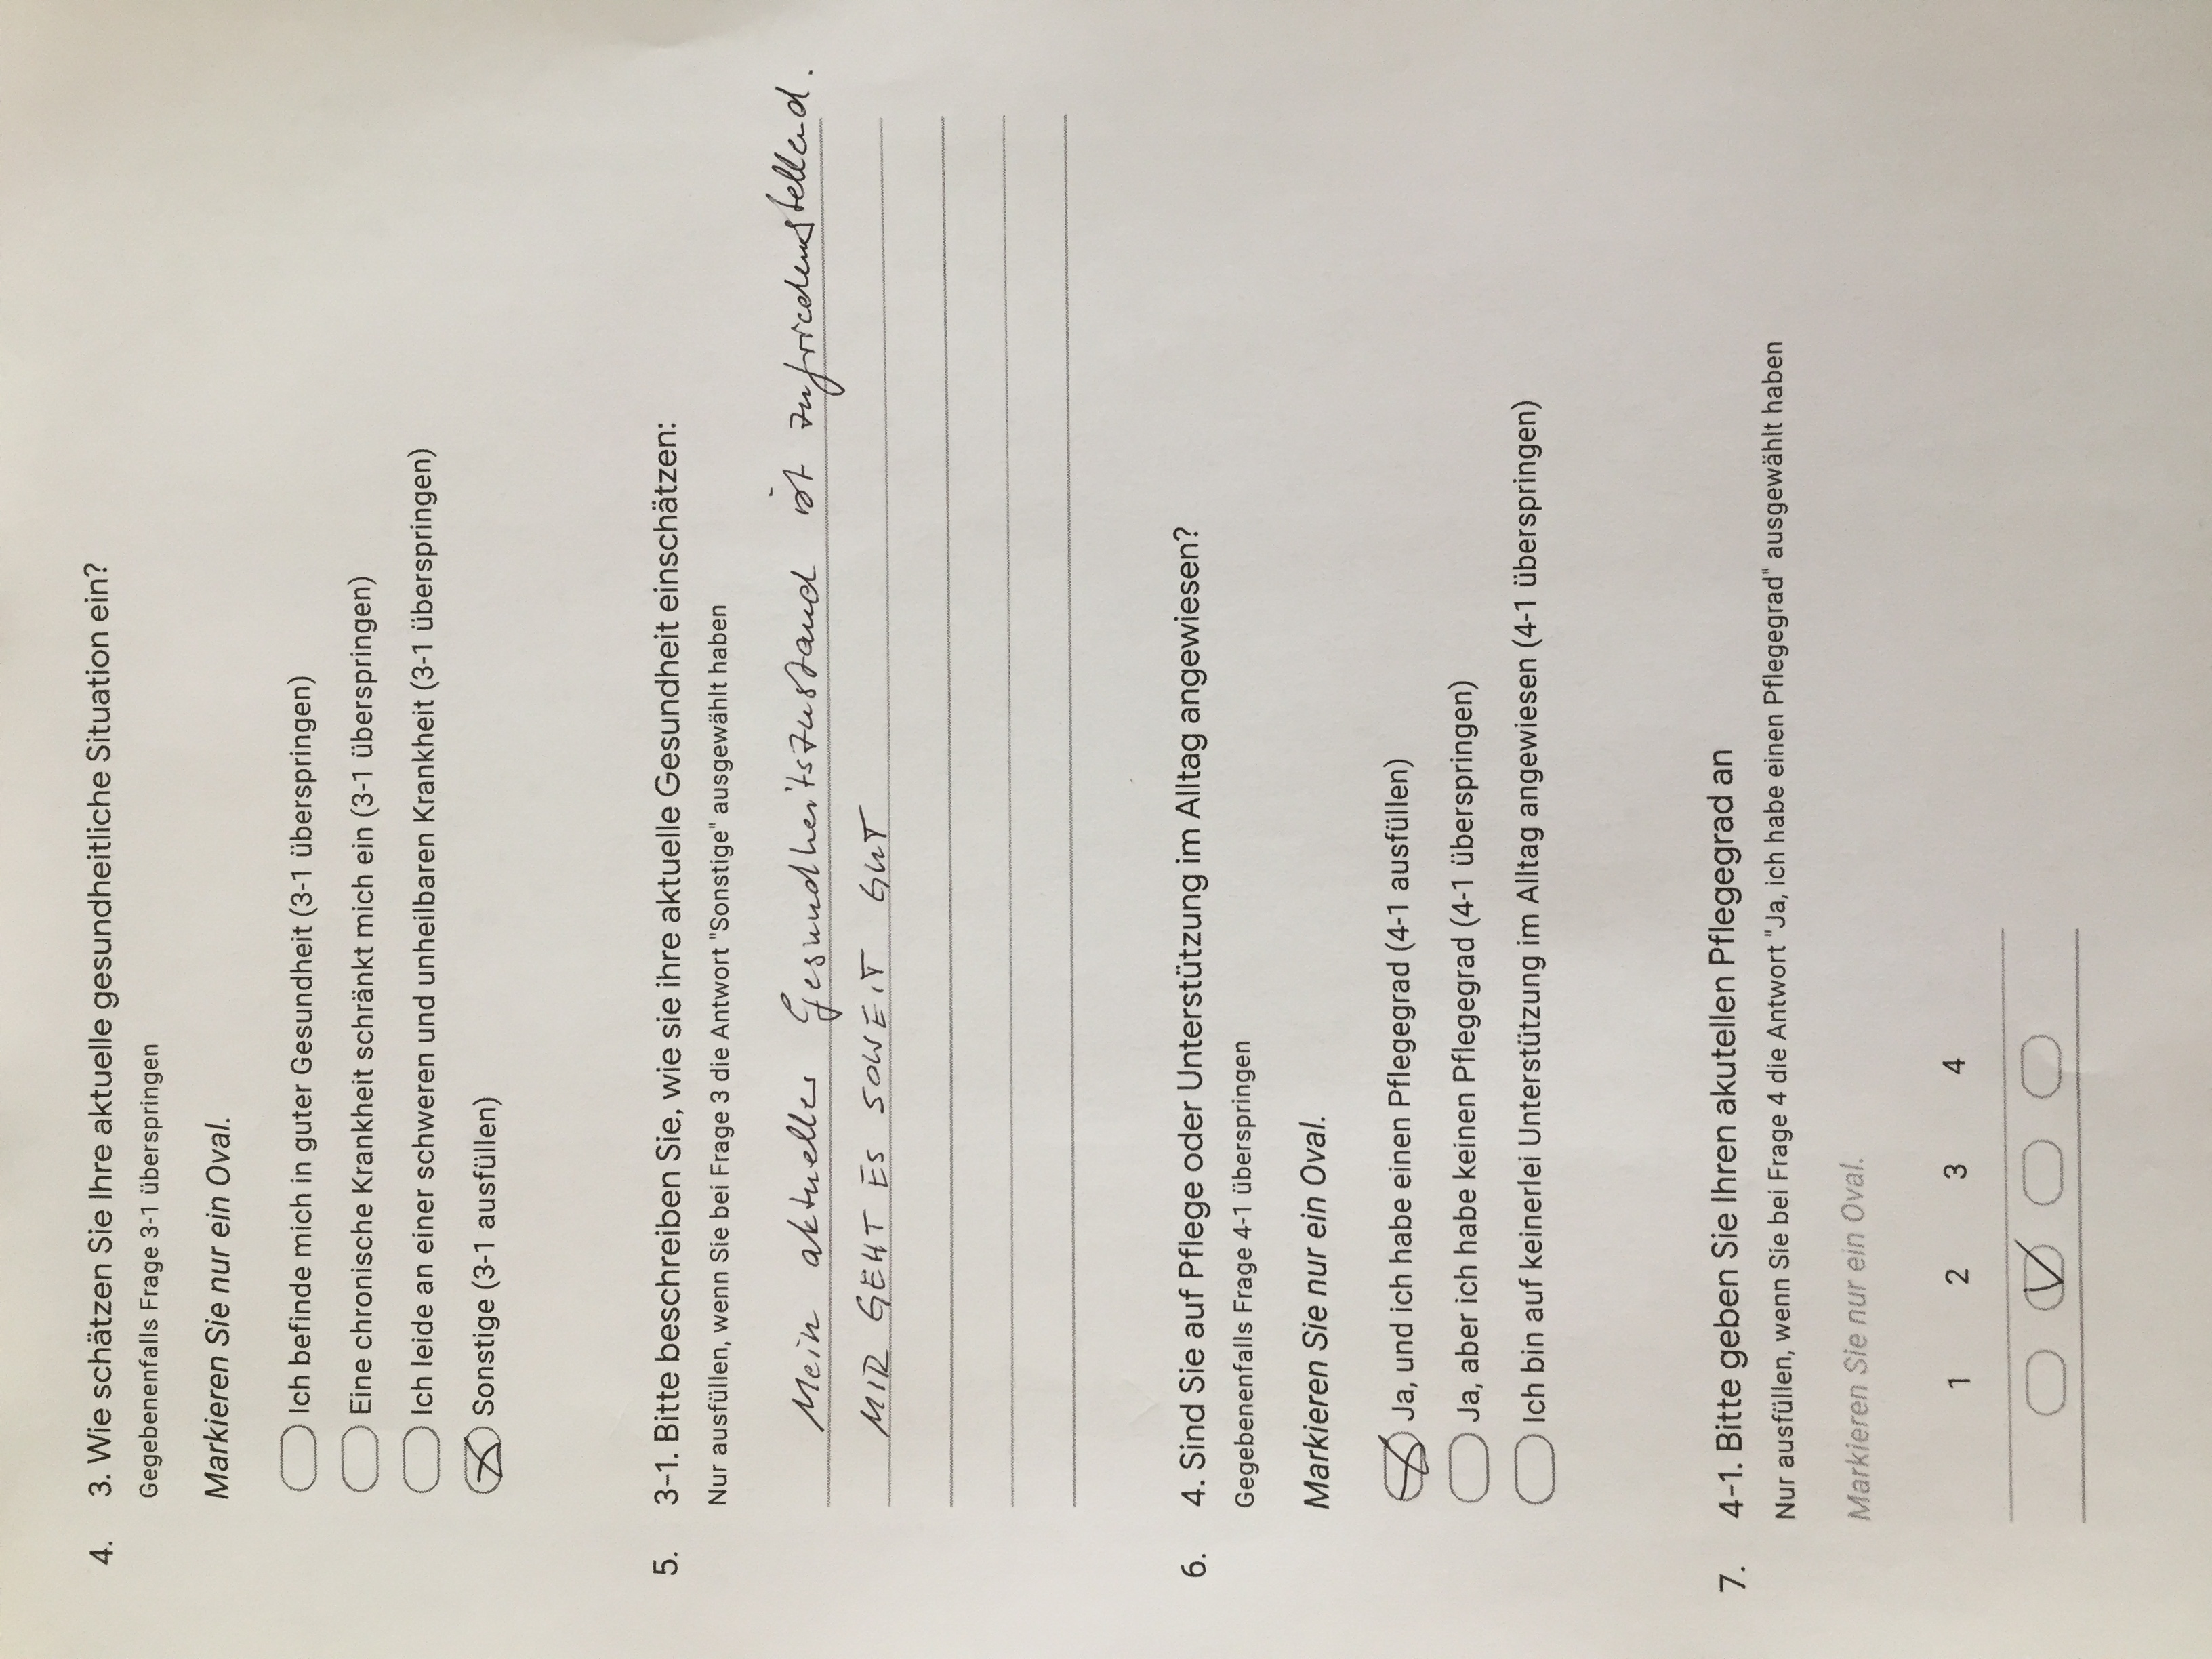 4. 3. Wie schätzen Sie Ihre aktuelle gesundheitliche Situation ein?
Gegebenenfalls Frage 3-1 überspringen
Markieren Sie nur ein Oval.
Ich befinde mich in guter Gesundheit (3-1 überspringen)
Eine chronische Krankheit schränkt mich ein (3-1 überspringen)
Ich leide an einer schweren und unheilbaren Krankheit (3-1 überspringen)
Sonstige (3-1 ausfüllen)
5. 3-1. Bitte beschreiben Sie, wie sie ihre aktuelle Gesundheit einschätzen:
Nur ausfüllen, wenn Sie bei Frage 3 die Antwort "Sonstige" ausgewählt haben
Mein aktueller Gesundheitszustand ist zufriedenstellend.
MIR GEHT ES SOWEIT GUT
6. 4. Sind Sie auf Pflege oder Unterstützung im Alltag angewiesen?
Gegebenenfalls Frage 4-1 überspringen
Markieren Sie nur ein Oval.
Ja, und ich habe einen Pflegegrad (4-1 ausfüllen)
Ja, aber ich habe keinen Pflegegrad (4-1 überspringen)
Ich bin auf keinerlei Unterstützung im Alltag angewiesen (4-1 überspringen)
7. 4-1. Bitte geben Sie Ihren akutellen Pflegegrad an
Nur ausfüllen, wenn Sie bei Frage 4 die Antwort "Ja, ich habe einen Pflegegrad" ausgewählt haben
Markieren Sie nur ein Oval.
1 2 3 4